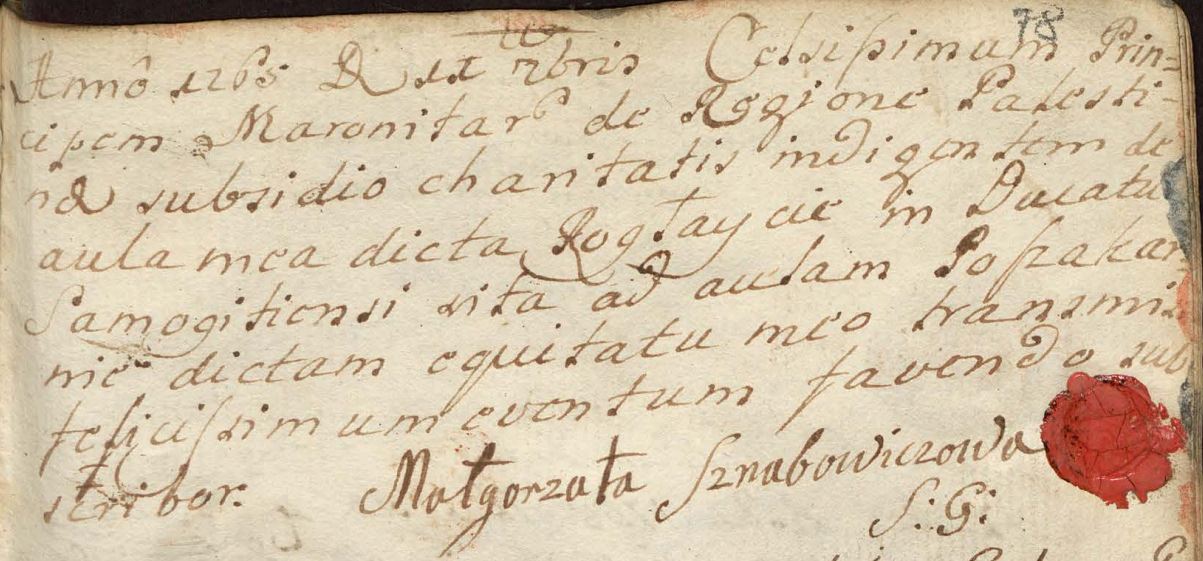 78
Annô 1765 D 11 7bris Celsissimum Prin=
cipem Maronitar de Regione Palesti-
na subsidio charitatis indigentem de
aula mea dicta Rogłaycie in Ducatu
Samogitiensi sita ad aulam Poszakar
nie dictam equitatu meo transmis
felicissimum eventum favendo sub
scribor. Małgorzata Sznabowiczowa
S: G: